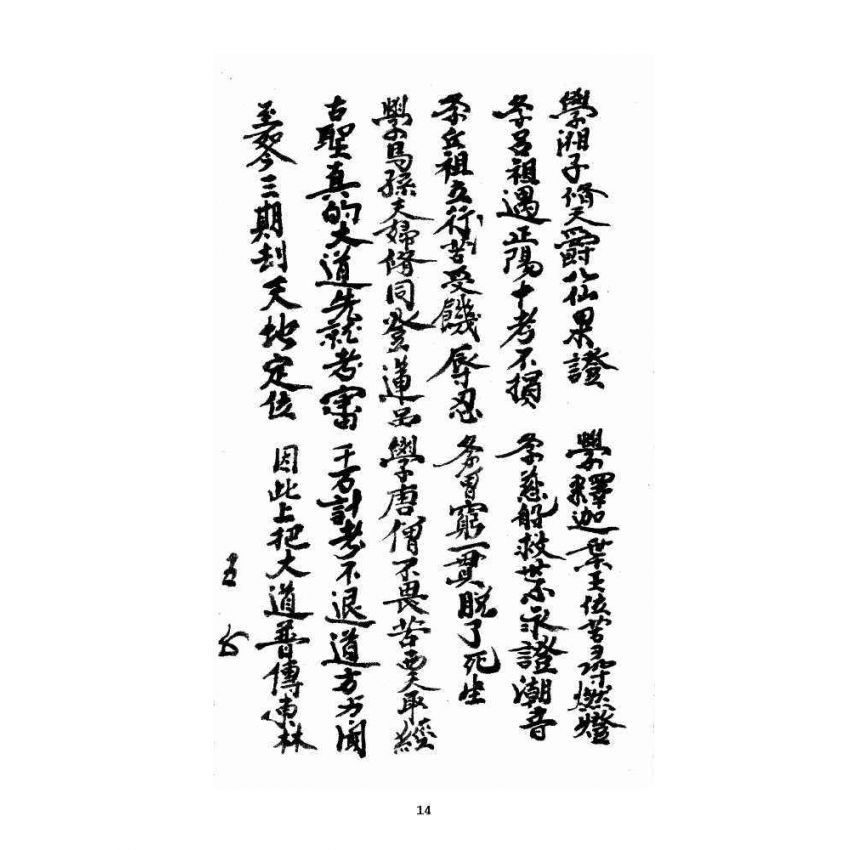 學湘子脩天爵八仙果證 學釋迦棄王位苦尋燃燈
学呂祖遇正陽十考不損 学慈船救世界永證潮音
学丘祖五行苦受饑辱忍 参曾窮一貫脫了死生
學馬孫夫婦脩同登蓮品 學唐僧不畏苦西天取經
古聖真的大道先就考審 千方計考不退道方才聞
至如今三期刦天地定位 因此上把大道普傳東林
五
14